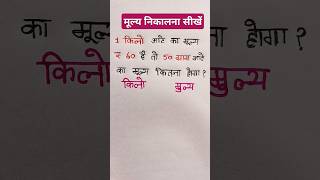 मूल्य निकालना सीखें
का मूल्य होगा?
1 किलो आटे का मूल्य
₹ 60 है तो 50 ग्राम आटे
का मूल्य कितना होगा?
किलो मुल्य